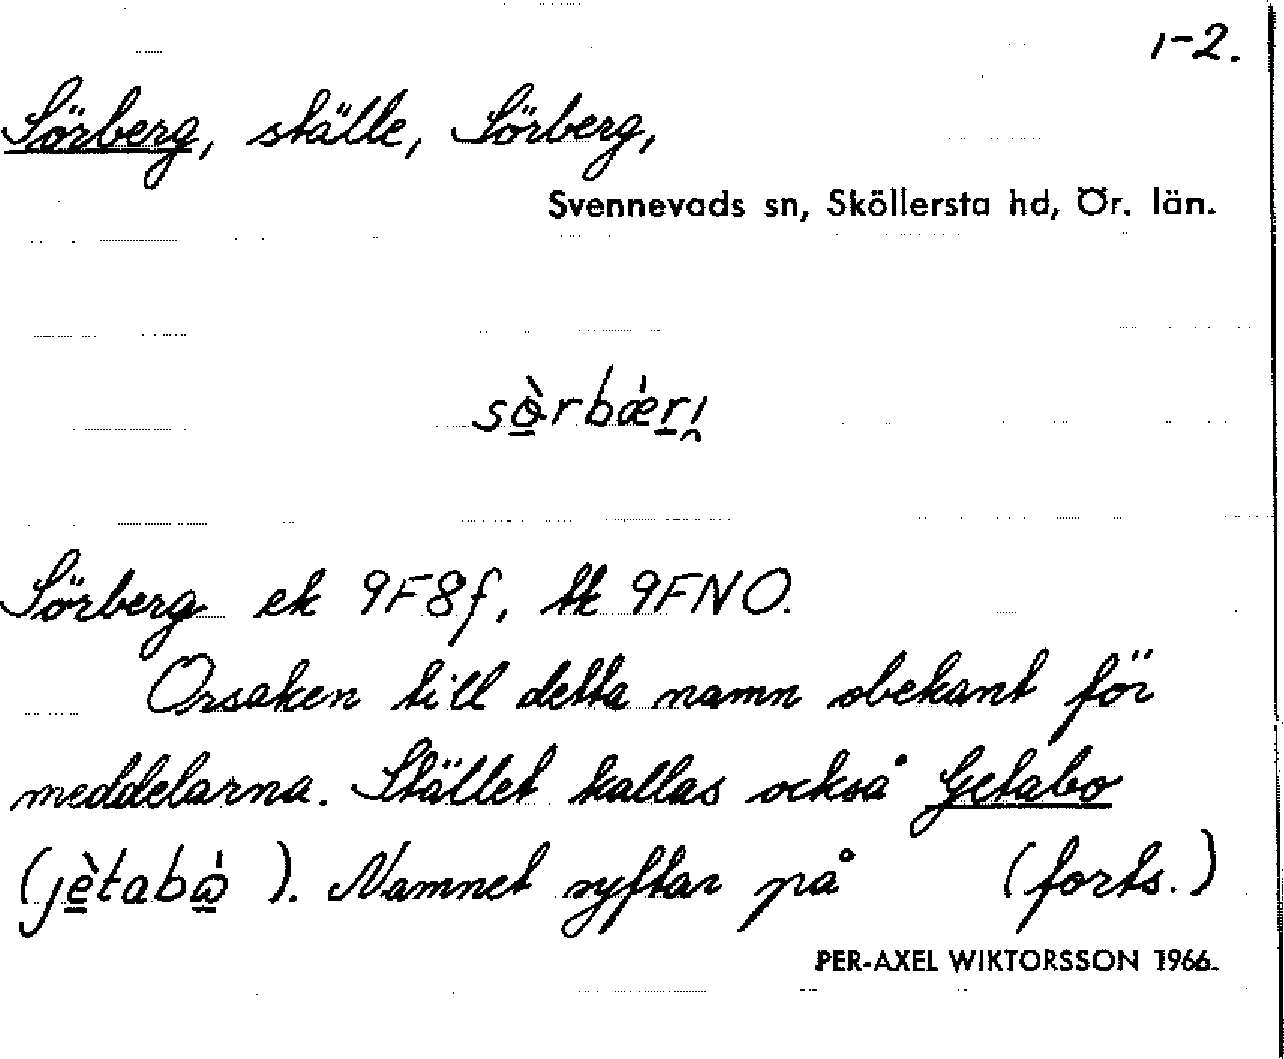 1-2.
Sörberg, ställe, Sörberg,
Svennevads sn, Sköllersta hd, Ör. län.
Sörberg ek 9F8f, tk 9FNO.
Orsaken till detta namn obekant för
meddelarna. Stället kallas också Getabo
(jètabὼ). Namnet syftar på (forts.)
PER-AXEL WIKTORSSON 1966.